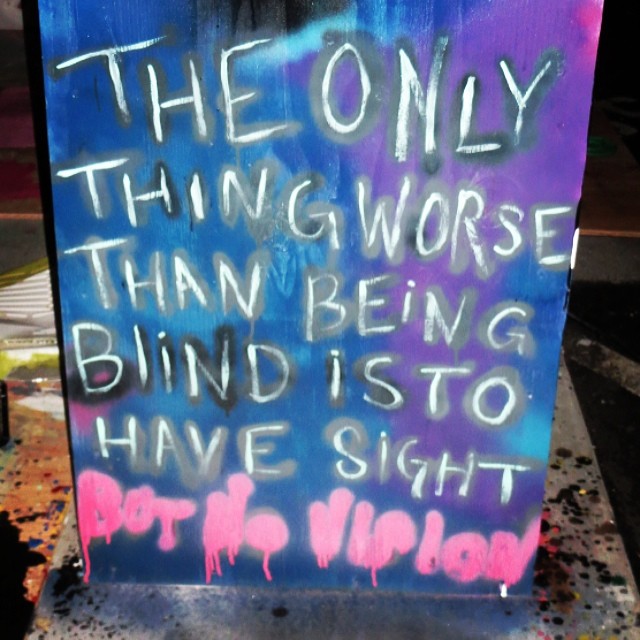 THE ONLY
THING WORSE
THAN BEiNG
BliND iS TO
HAVE SiGHT
But No Vision